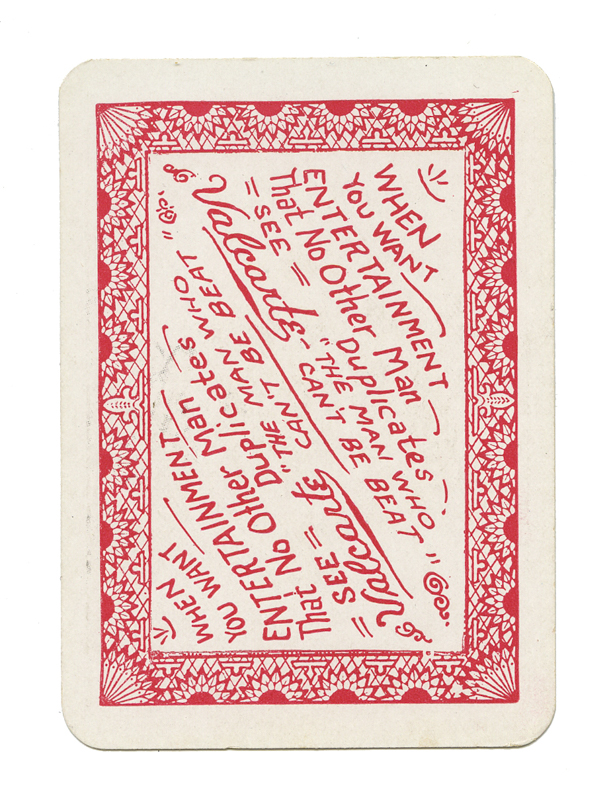 WHEN
YOU WANT
ENTERTAINMENT
That No Other Man
Duplicates
= SEE =
Valcarte-
"THE MAN WHO
CAN'T BE BEAT"
WHEN
YOU WANT
ENTERTAINMENT
That No Other Man
Duplicates
= SEE =
Valcarte
"THE MAN WHO
CAN'T BE BEAT"